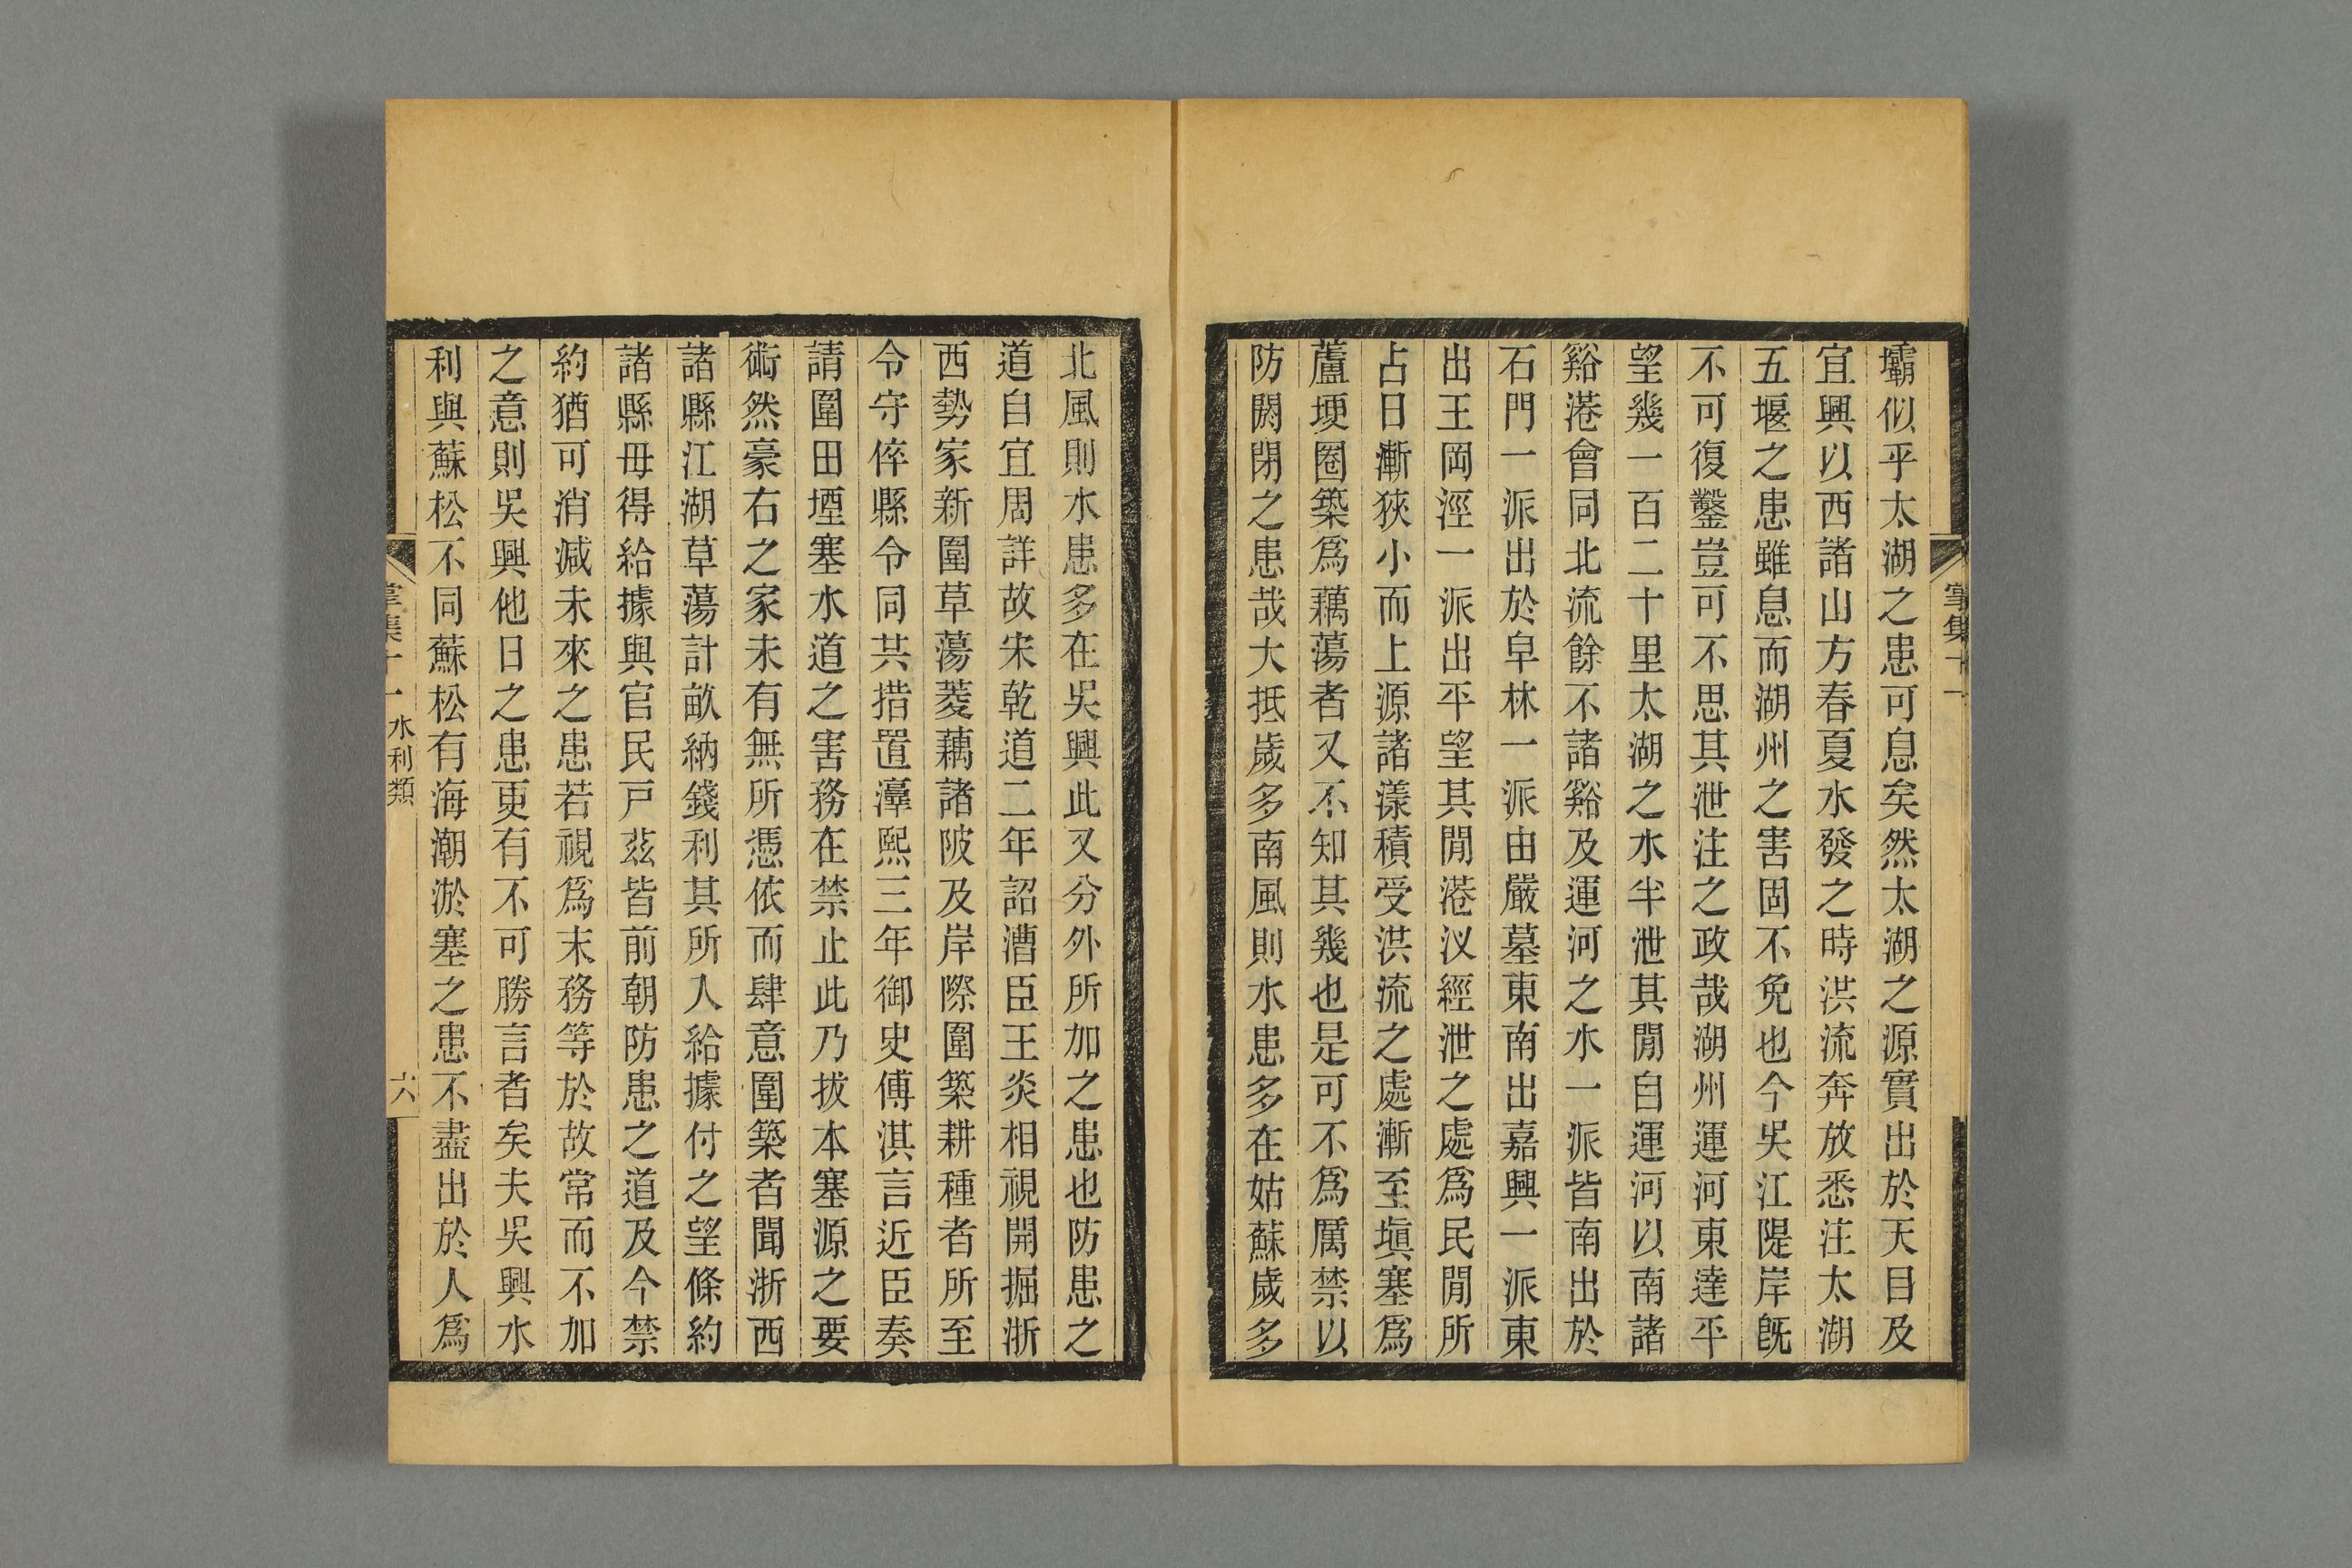 掌集十一
壩似乎太湖之患可息矣然太湖之源實出於天目及
宜興以西諸山方春夏水發之時洪流奔放悉注太湖
五堰之患雖息而湖州之害固不免也今吳江隄岸旣
不可復鑿豈可不思其泄注之政哉湖州運河東達平
望幾一百二十里太湖之水半泄其閒自運河以南諸
谿港會同北流餘不諸谿及運河之水一派皆南出於
石門一派出於皁林一派由嚴墓東南出嘉興一派東
出王岡涇一派出平望其閒港汊經泄之處爲民閒所
占日漸狹小而上源諸漾積受洪流之處漸至塡塞爲
蘆埂圈築爲藕蕩者又不知其幾也是可不爲厲禁以
防閼閉之患哉大抵歲多南風則水患多在姑蘇歲多
北風則水患多在吳興此又分外所加之患也防患之
道自宜周詳故宋乾道二年詔漕臣王炎相視開掘浙
西勢家新圍草蕩菱藕諸陂及岸際圍築耕種者所至
令守倅縣令同共措置湻熙三年御史傅淇言近臣奏
請圍田堙塞水道之害務在禁止此乃拔本塞源之要
術然豪右之家未有無所憑依而肆意圍築者聞浙西
諸縣江湖草蕩計畝納錢利其所入給據付之望條約
諸縣毋得給據與官民戸茲皆前朝防患之道及今禁
約猶可消減未來之患若視爲末務等於故常而不加
之意則吳興他日之患更有不可勝言者矣夫吳興水
利與蘇松不同蘇松有海潮淤塞之患不盡出於人爲
掌集十一 水利類 六